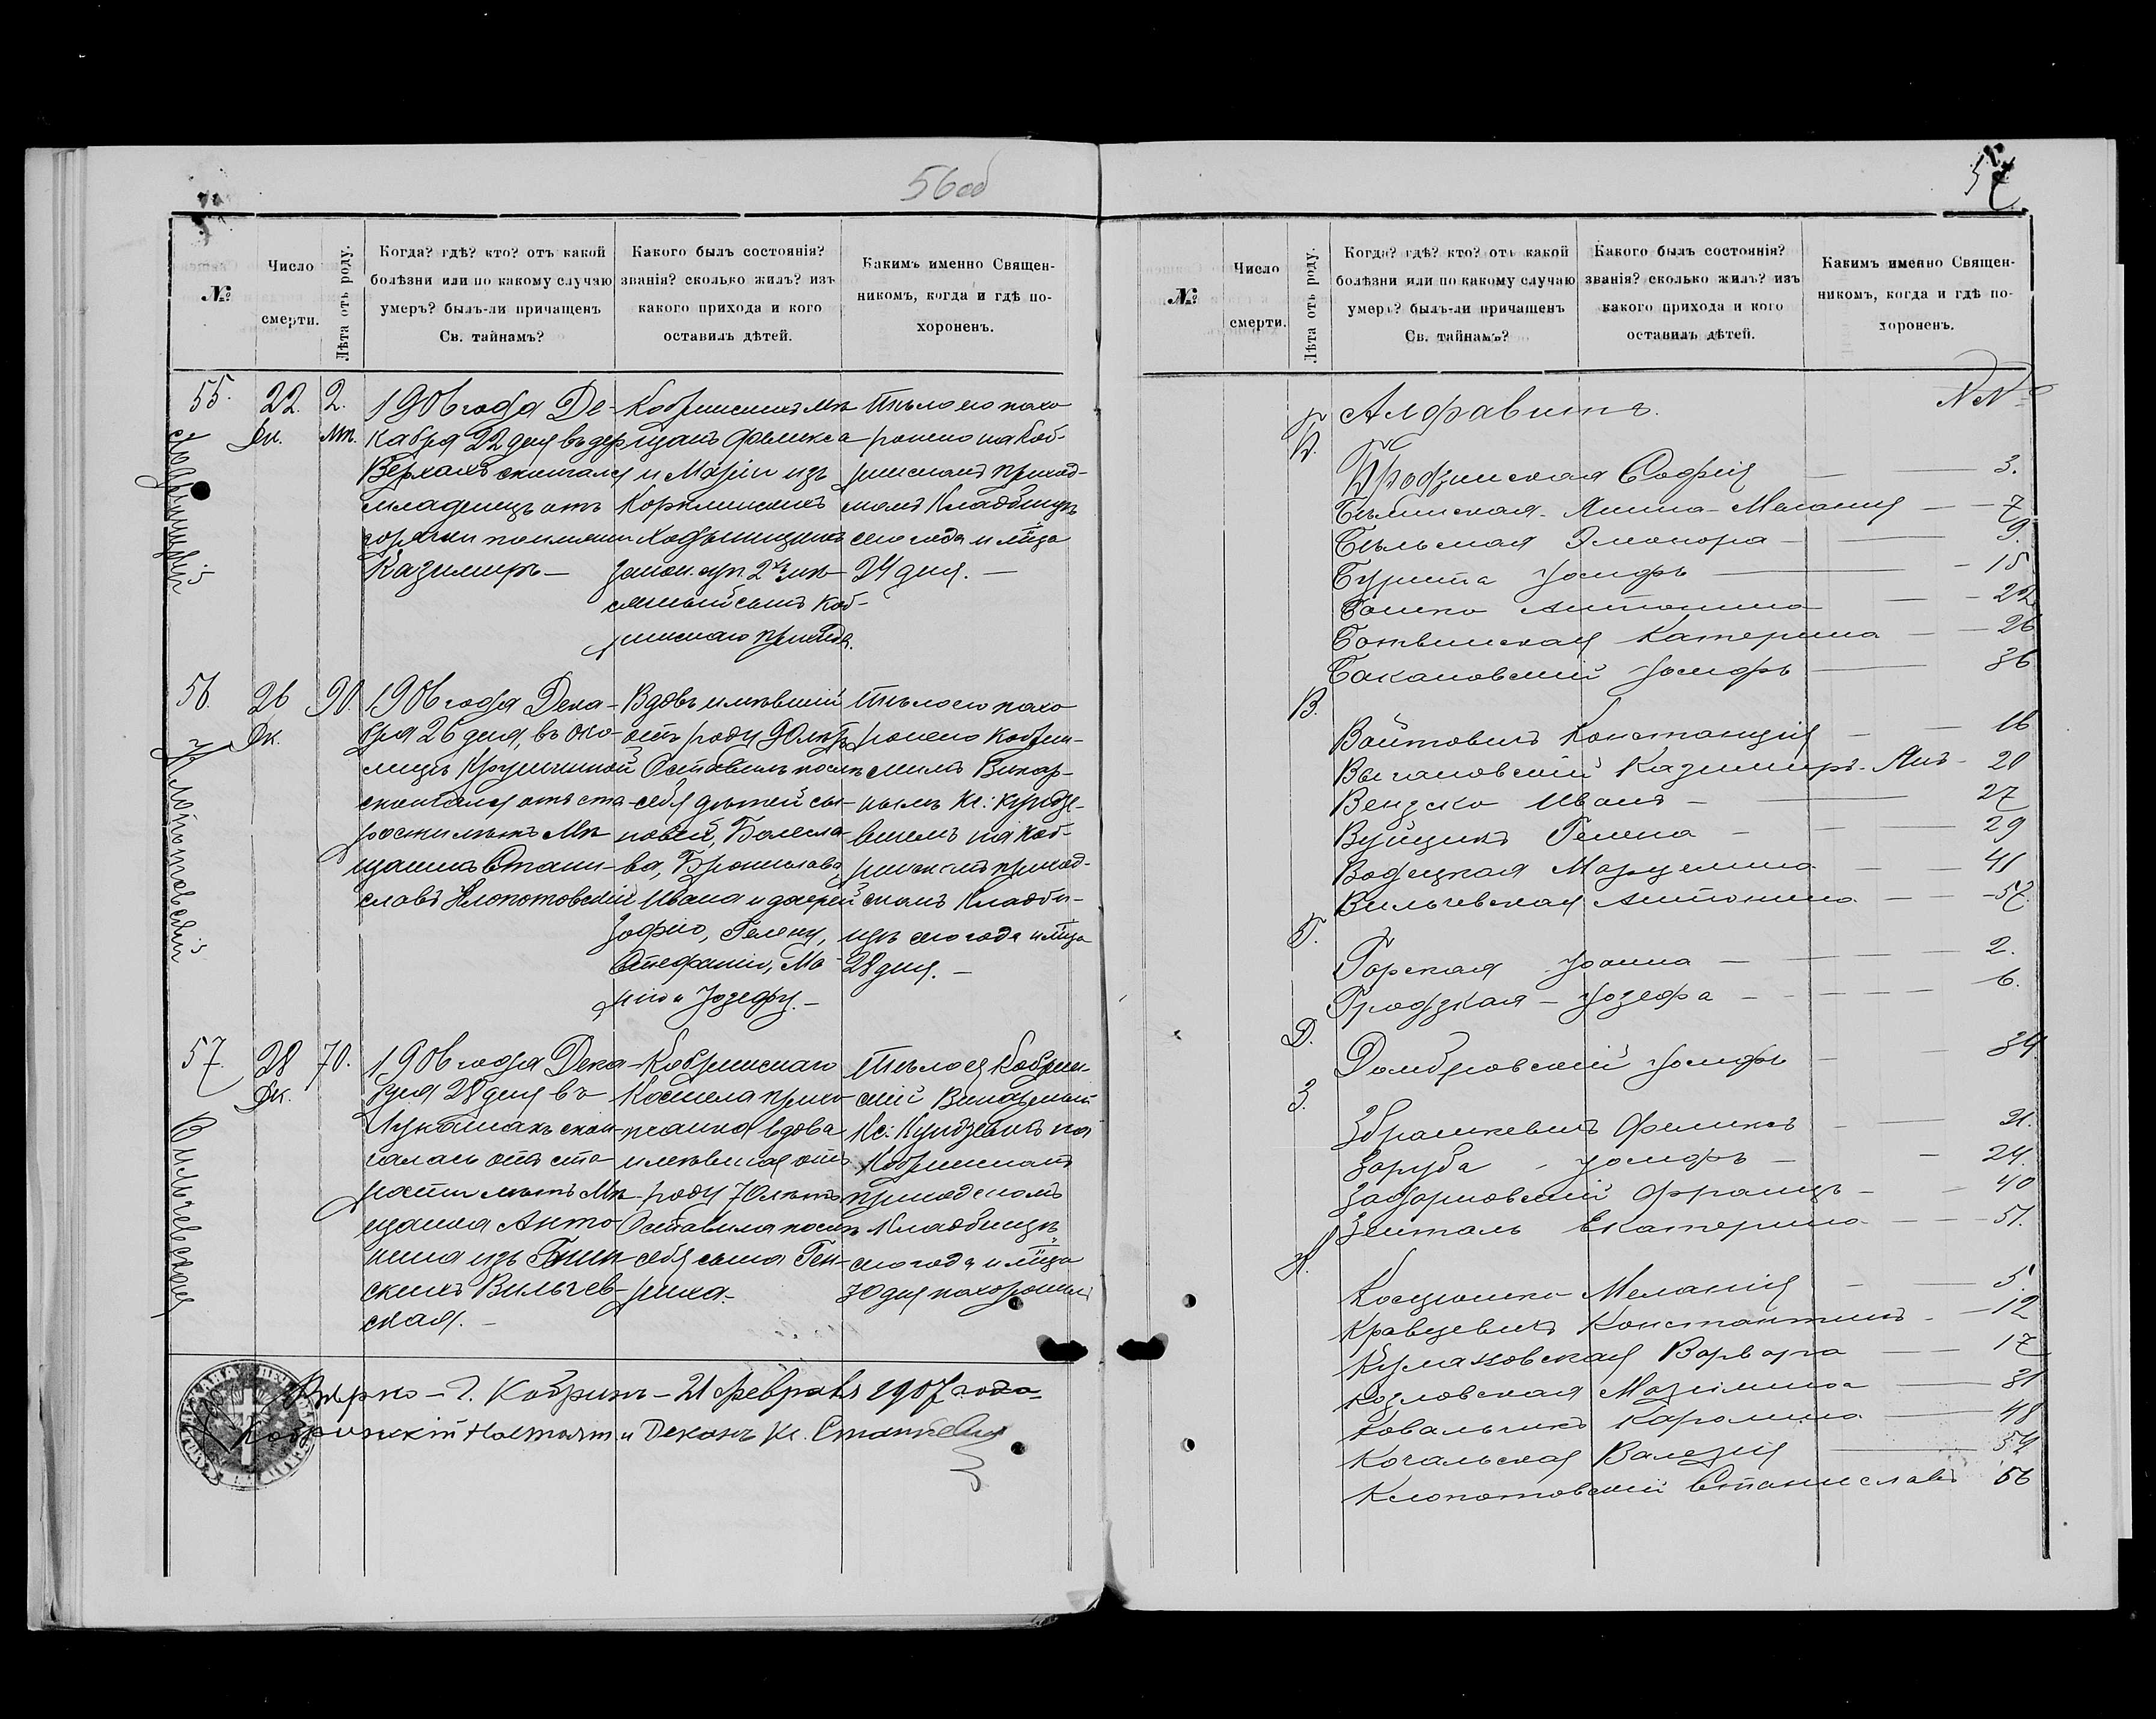 56об
№
Число
смерти.
Лѣта отъ роду.
Когда? гдѣ? кто? отъ какой
болѣзни или по какому случаю
умеръ? былъ-ли причащенъ
Св. тайнамъ?
Какого былъ состоянія?
званія? сколько жилъ? изъ
какого прихода и кого
оставилъ дѣтей.
Какимъ именно Священ-
никомъ, когда и гдѣ по-
хороненъ.
55.
22.
Дек.
2.
мѣ.
1906 года Де-
кабря 22 дня въ дер
Верхахъ скончался
младенецъ отъ
горячки по имени
Казимиръ —
Кобринскихъ мѣ
щанъ Феликса
и Маріи изъ
законн. суп. 2хъ мѣ-
сячный сынъ Коб-
ринскаго прихода.
Тѣло его похо
ронено на Коб-
ринскомъ приход-
скомъ Кладбищѣ
сего года и мца
24 дня. —
56.
26
Дк.
90.
Клопотовскій
1906 года Дека-
бря 26 дня, въ око-
лицѣ
скончался отъ ста-
рости лѣтъ Мѣ
щанинъ Стани-
славъ Клопотовскій
Вдовъ имѣвшій
отъ роду 90 лѣтъ
Оставилъ послѣ
себя дѣтей сы-
новей, Болесла-
ва, Бронислава,
Ивана и дочерей
Зофію, Гелену,
Стефанію, Ма-
рію и Юзефу. —
Тѣло его похо
ронено Кобрин-
скимъ Викар-
нымъ Кс: Кундзе-
вичемъ на Коб-
ринскомъ приход-
скомъ Кладби-
щѣ сего года и мца
28 дня. —
57.
28
Дк.
70.
Вильчевская
1906 года Дека-
бря 28 дня въ
скон-
чалась отъ ста
рости лѣтъ Мѣ-
щанка Анто-
нина изъ
скихъ Вильчев-
ская. —
Кобринскаго
Костела прихо
жанка вдова
имѣвшая отъ
роду 70 лѣтъ
Оставила послѣ
себя сына Ген-
риха. —
Тѣло ея Кобрин-
скій Викарный
Кс: Кундзевичъ на
Кобринскомъ
приходскомъ
Кладбищѣ
сего года и мца
30 дня похоронилъ
Вѣрно — Г. Кобринъ — 21 Февраля 1907 года
Кобринскій Настоят. и Деканъ Кс.
57
№
Число
смерти.
Лѣта отъ роду.
Когда? гдѣ? кто? отъ какой
болѣзни или по какому случаю
умеръ? былъ-ли причащенъ
Св. тайнамъ?
Какого былъ состоянія?
званія? сколько жилъ? изъ
какого прихода и кого
оставилъ дѣтей.
Какимъ именно Священ-
никомъ, когда и гдѣ по-
хороненъ.
Алфавитъ. №№
Б.
Бродзинская Софія — 3.
Анна-Меланія — 7
Бѣльская Элеонора — 9.
Іосифъ — 15
Антонина — 22
Ботвинская Катерина — 26
Бакановскій Іосифъ — 36
В.
Войтовичъ Констанція — 16
Казимиръ-Янъ — 20
Иванъ — 27
Вуйцикъ Гелена — 29
Марцелина — 41
Вильчевская Антонина — 57
Г.
Горская Іоанна — 2.
Гродзкая — Юзефа — 6.
Д.
Домбровскій Іосифъ — 34.
З.
Феликсъ — 21.
Заруба — Іосифъ — 24.
Францъ — 40
Екатерина — 51.
К.
Косцюшко Меланія — 5.
Кравцевичъ Константинъ — 12
Варвара — 17
Козловская — 31
Ковальчикъ Каролина — 48
Валерія — 54
Клопотовскій Станиславъ 56